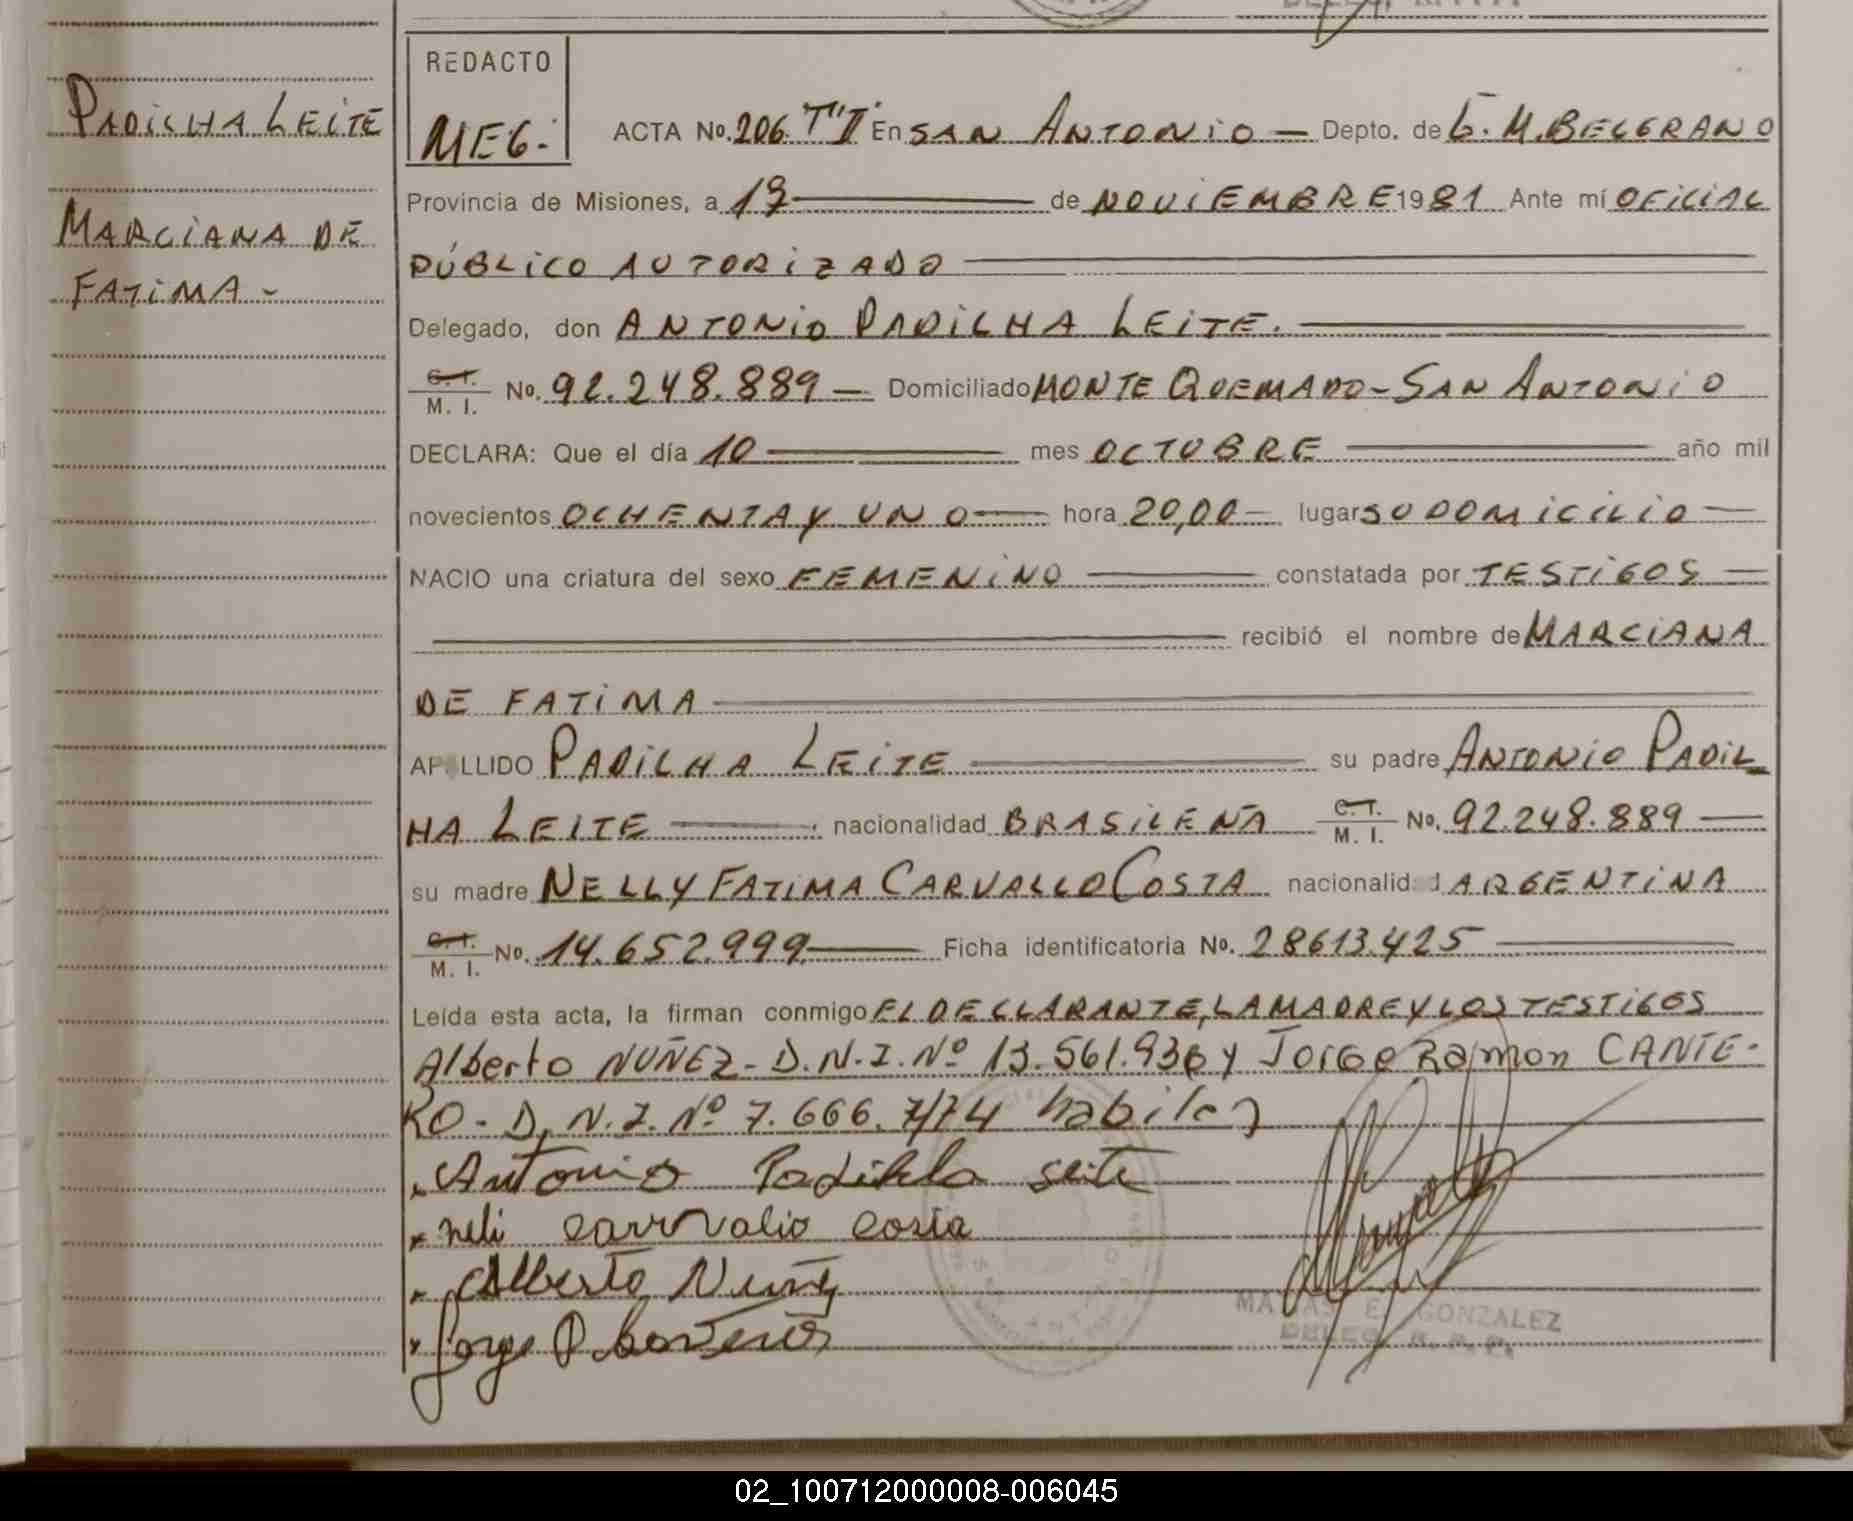 PADILHA LEITE
MARCIANA DE
FATIMA -
REDACTO
MEG.
ACTA No. 206 Tº I En SAN ANTONIO — Depto. de G. M. BELGRANO
Provincia de Misiones, a 17 de NOVIEMBRE 1981 Ante mí OFICIAL
PÚBLICO AUTORIZADO
Delegado, don ANTONIO PADILHA LEITE.
C. I. M. I. No. 92.248.889 — Domiciliado MONTE QUEMADO - SAN ANTONIO
DECLARA: Que el día 10 mes OCTUBRE año mil
novecientos OCHENTA Y UNO hora 20,00 lugar SU DOMICILIO
NACIO una criatura del sexo FEMENINO constatada por TESTIGOS
recibió el nombre de MARCIANA
DE FATIMA
AP LLIDO PADILHA LEITE su padre ANTONIO PADIL
HA LEITE nacionalidad BRASILEÑA C. I. M. I. No. 92.248.889
su madre NELLY FATIMA CARVALLO COSTA nacionalid d ARGENTINA
C. I. M. I. No. 14.652.999 Ficha identificatoria No. 28613.425
Leída esta acta, la firman conmigo EL DECLARANTE, LA MADRE Y LOS TESTIGOS
Alberto NUÑEZ - D.N.I. Nº 13.561.936 y Jorge Ramon CANTE-
RO - D.N.I. Nº 7.666.774 habiles
Antonio Padilha Leite
neli carvalio costa
Alberto Nuñez
Jorge R Cantero
MATIAS E. GONZALEZ
DELEG. R. P. P.
02_100712000008-006045